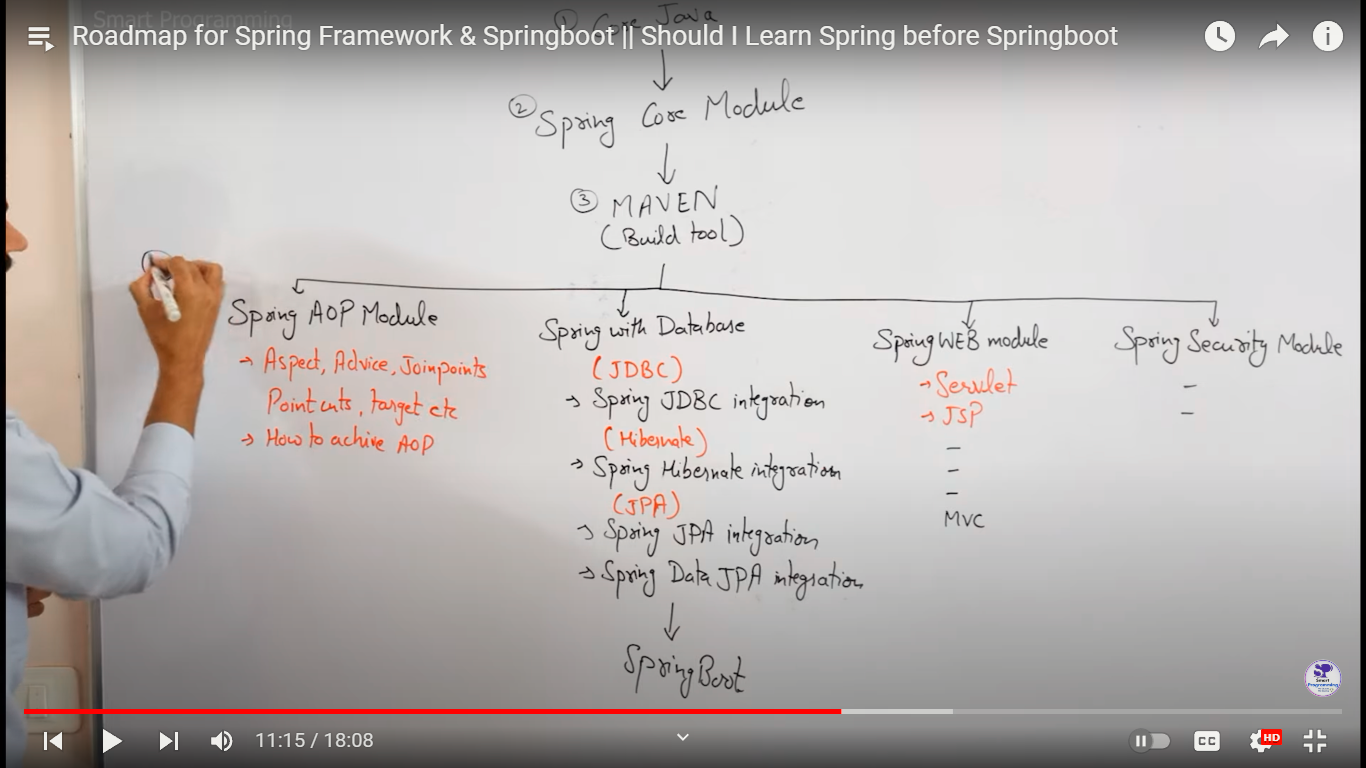 Smart Programming
① Core Java
Roadmap for Spring Framework & Springboot || Should I Learn Spring before Springboot
② Spring Core Module
③ MAVEN
(Build tool)
Spring AOP Module
→ Aspect, Advice, Joinpoints
Point cuts, target etc
→ How to achive AOP
Spring with Database
(JDBC)
→ Spring JDBC integration
(Hibernate)
→ Spring Hibernate integration
(JPA)
→ Spring JPA integration
→ Spring Data JPA integration
Spring WEB module
→ Servlet
→ JSP
–
–
–
MVC
Spring Security Module
–
–
SpringBoot
Smart
Programming
11:15 / 18:08
CC
HD